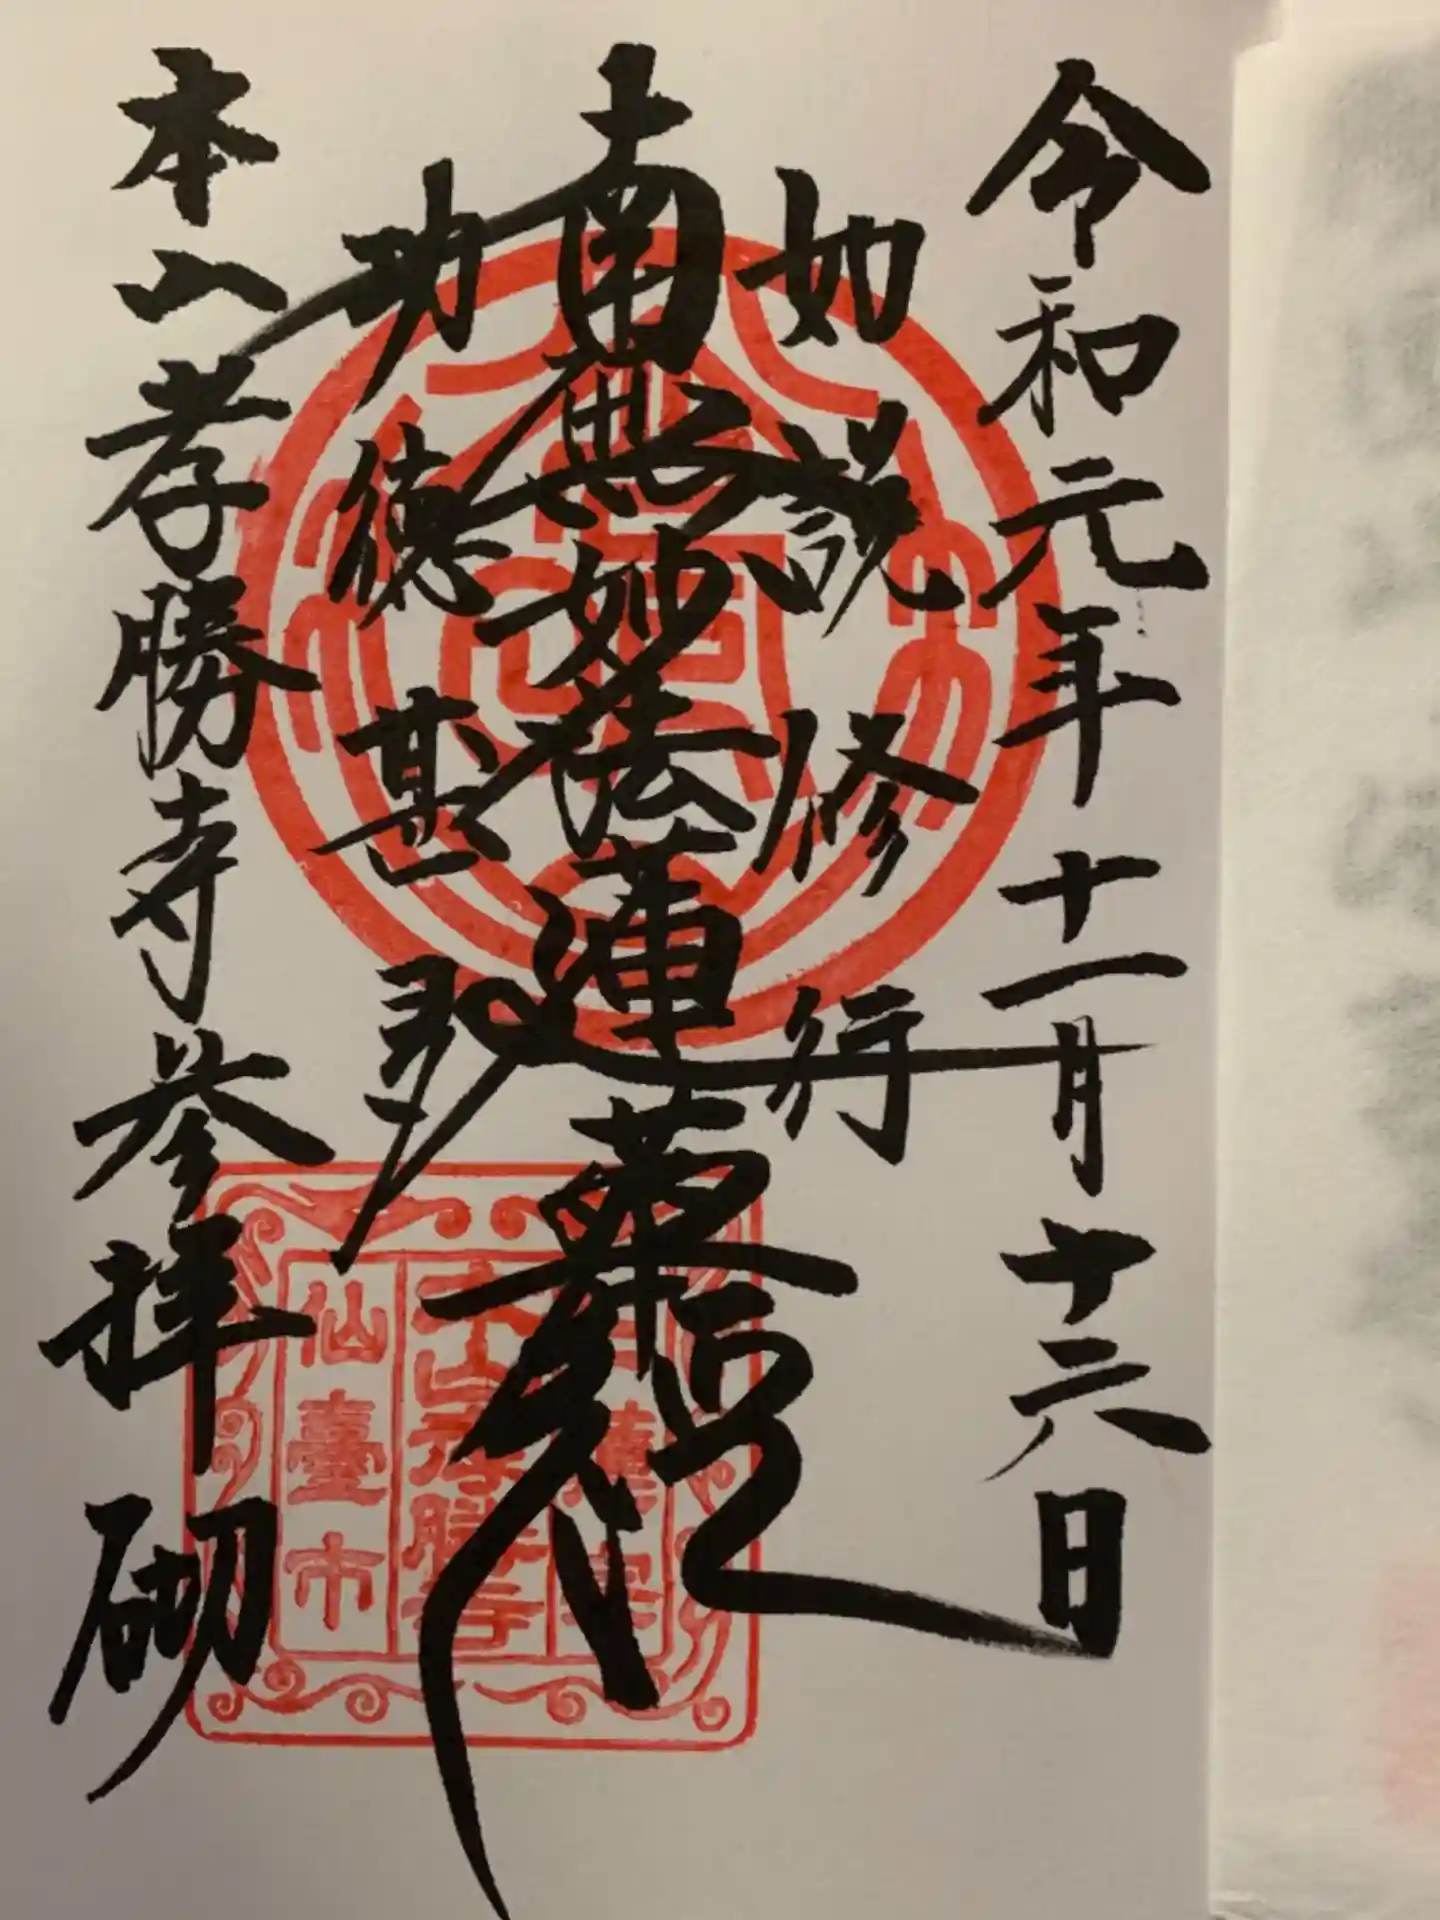 令和元年十一月十六日
如説修行
南無妙法蓮華経
功徳甚多
本山孝勝寺参拝砌
日蓮宗
本山孝勝寺
仙臺市